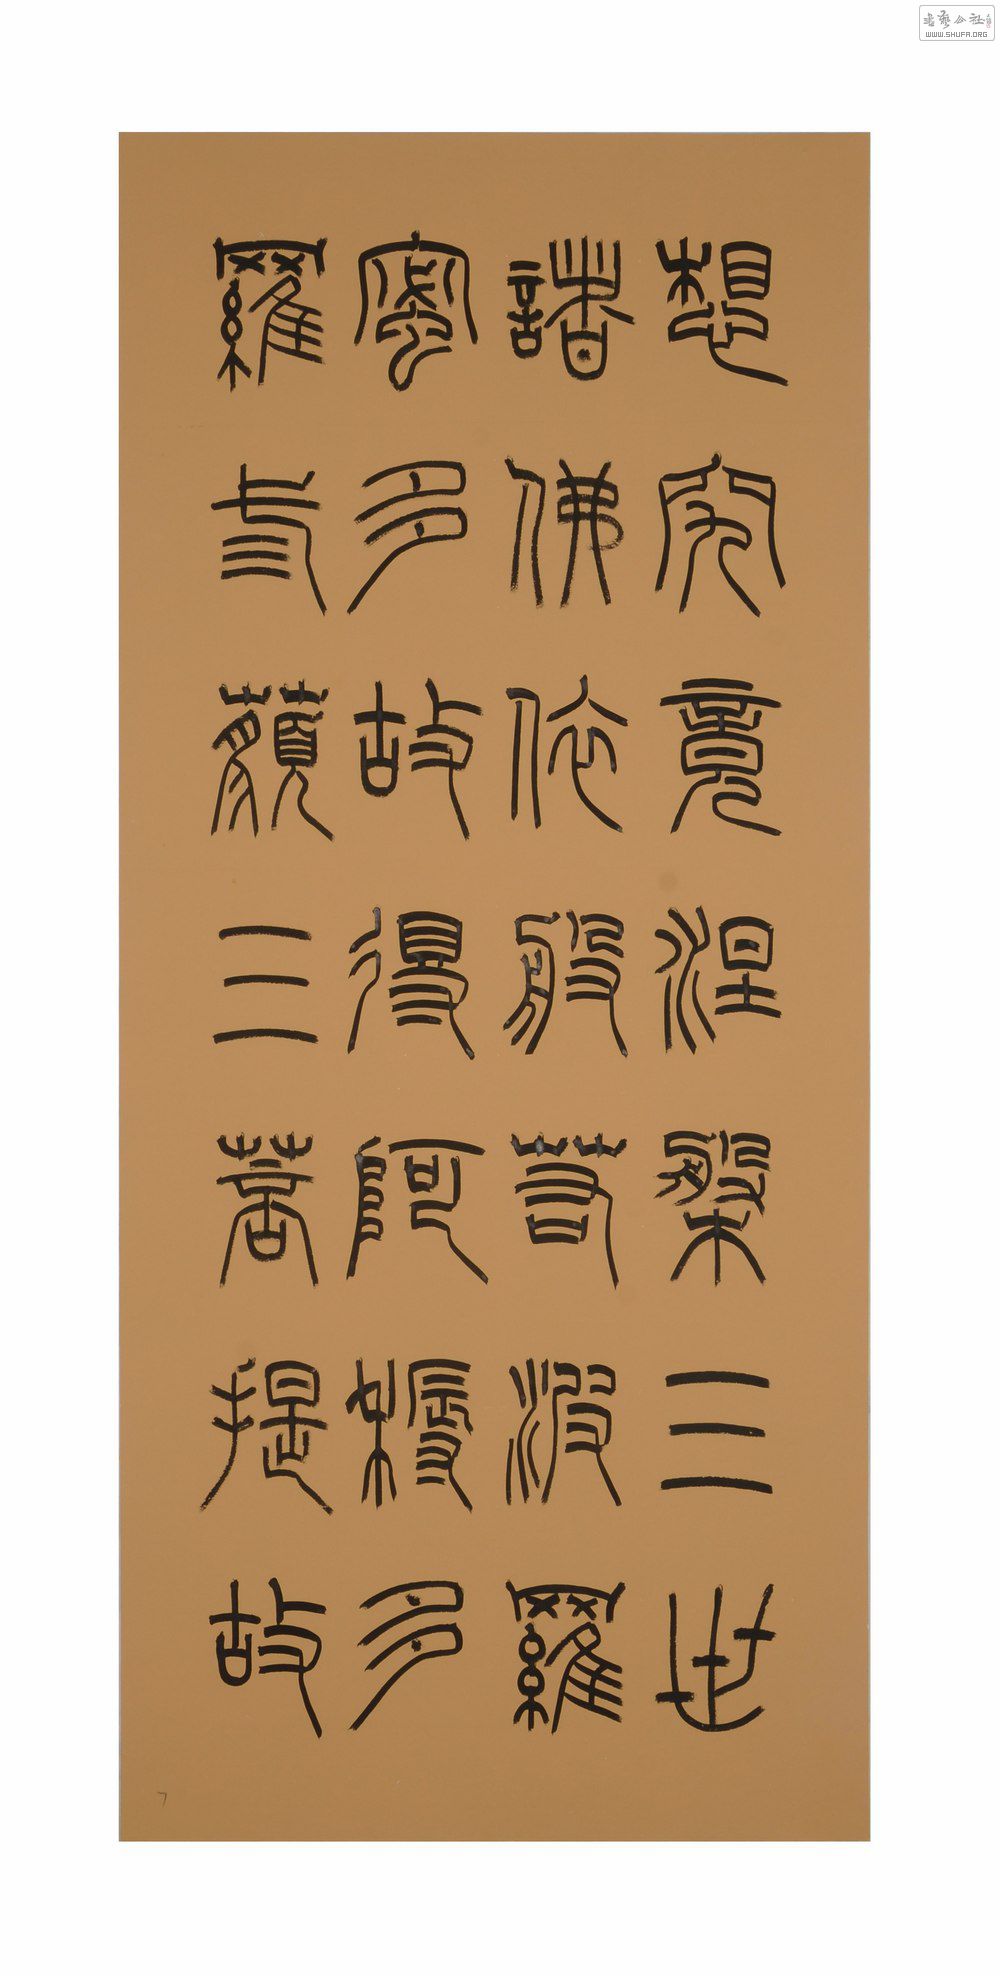 想究竟涅槃三世
諸佛依般若波羅
蜜多故得阿耨多
羅弎藐三菩提故
7
书艺公社
WWW.SHUFA.ORG